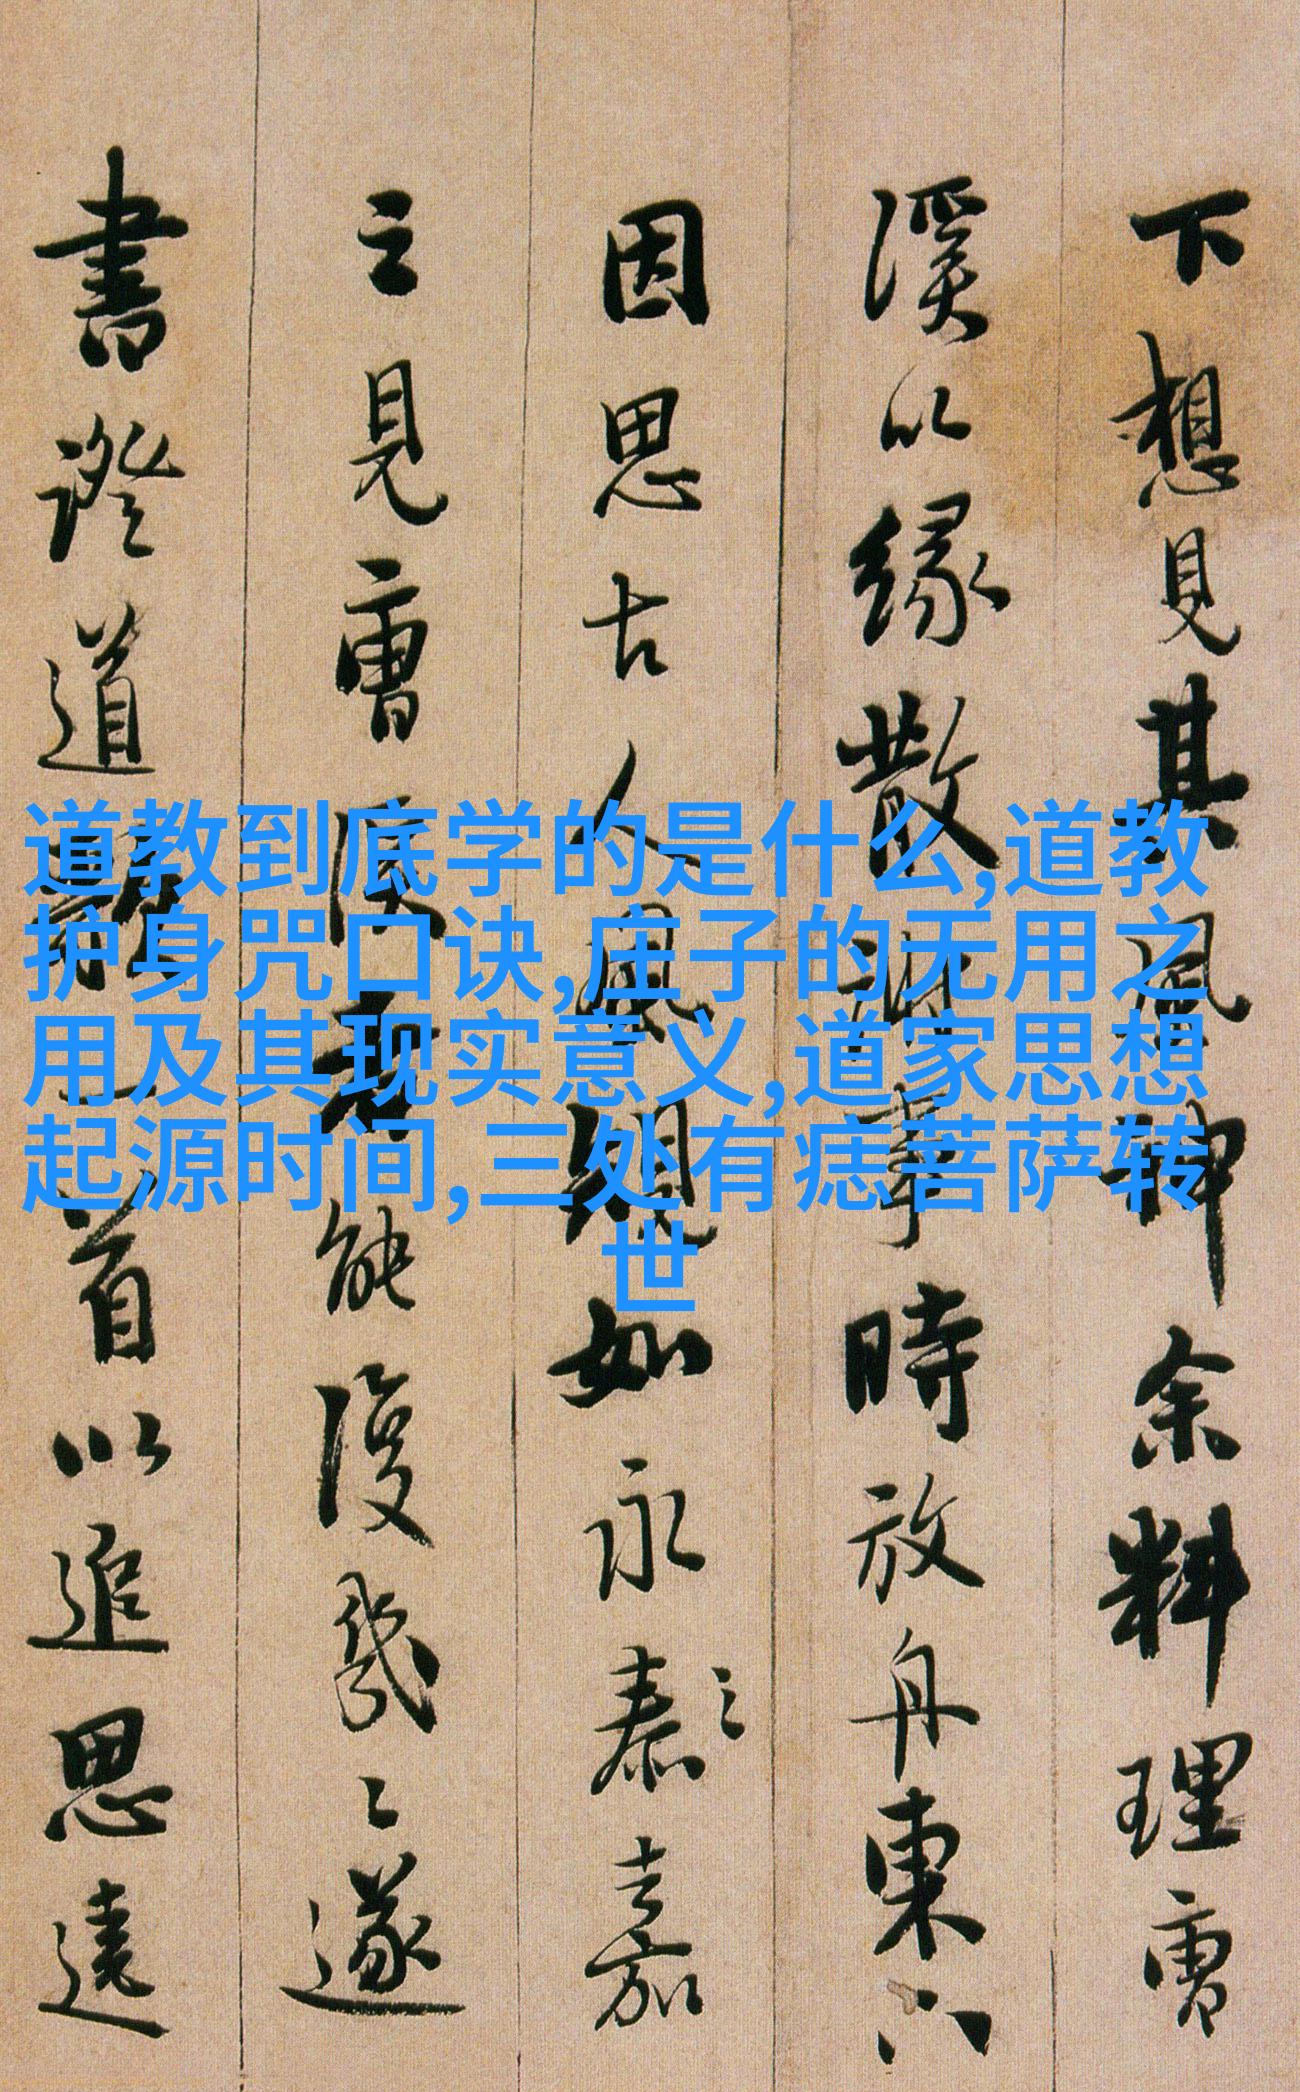 道教到底学的是什么,道教
护身咒口诀,庄子的无用之
用及其现实意义,道家思想
起源时间,三处有痣菩萨转
世
下想見其風神余料理曹
溪以緣散事時放舟東
因思古人風規如永泰之嘉
之見曹能復幾
遂
書證道歌一首以追思遠